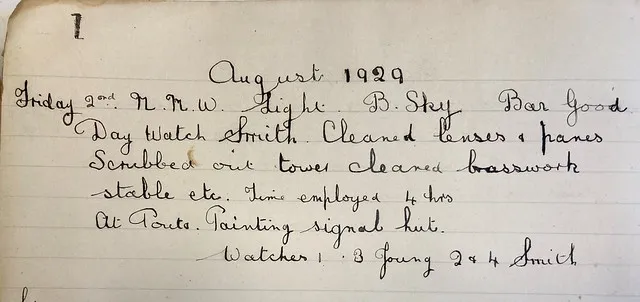 1
August 1929
Friday 2nd. N.N.W. Light. B. Sky Bar Good.
Day Watch Smith. Cleaned lenses & panes
Scrubbed out tower cleaned brasswork
stable etc. Time employed 4 hrs
At Pouto. Painting signal hut.
Watches 1 . 3 Young 2 & 4 Smith